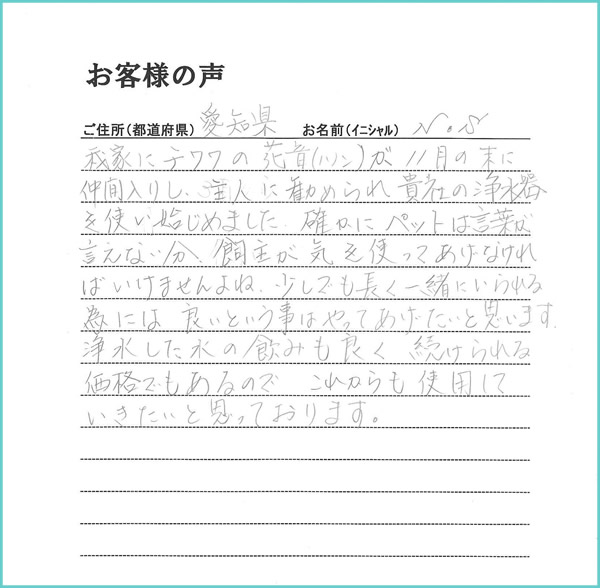 お客様の声
ご住所(都道府県) 愛知県 お名前(イニシャル) N.S
我家にチワワの花音(ハノン)が11月の末に
仲間入りし、主人に勧められ貴社の浄水器
を使い始じめました。確かにペットは言葉が
言えない分、飼主が気を使ってあげなけれ
ばいけませんよね。少しでも長く一緒にいられる
為には良いという事はやってあげたいと思います。
浄水した水の飲みも良く 続けられる
価格でもあるので これからも使用して
いきたいと思っております。